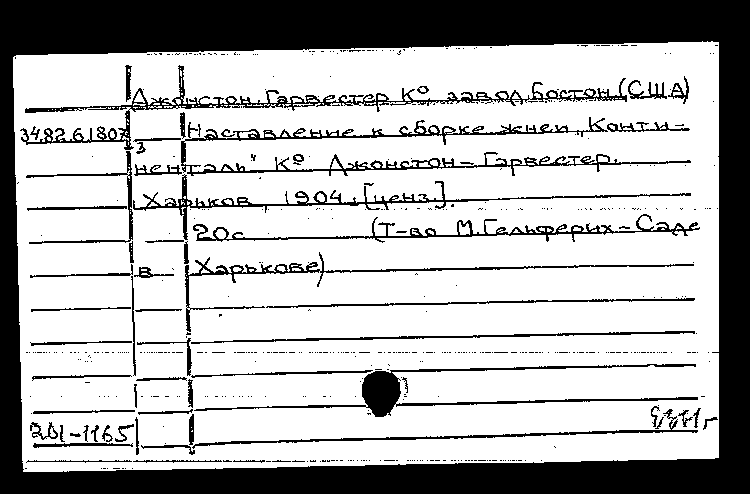 Джонстон. Гарвестер К⁰, завод, Бостон (США)
34.82.61807 Наставление к сборке жнеи „Конти-
3
ненталь" К⁰ Джонстон-Гарвестер.
Харьков, 1904. [ценз].
20с (Т-во М.Гельферих-Саде
в Харькове)
201-1165